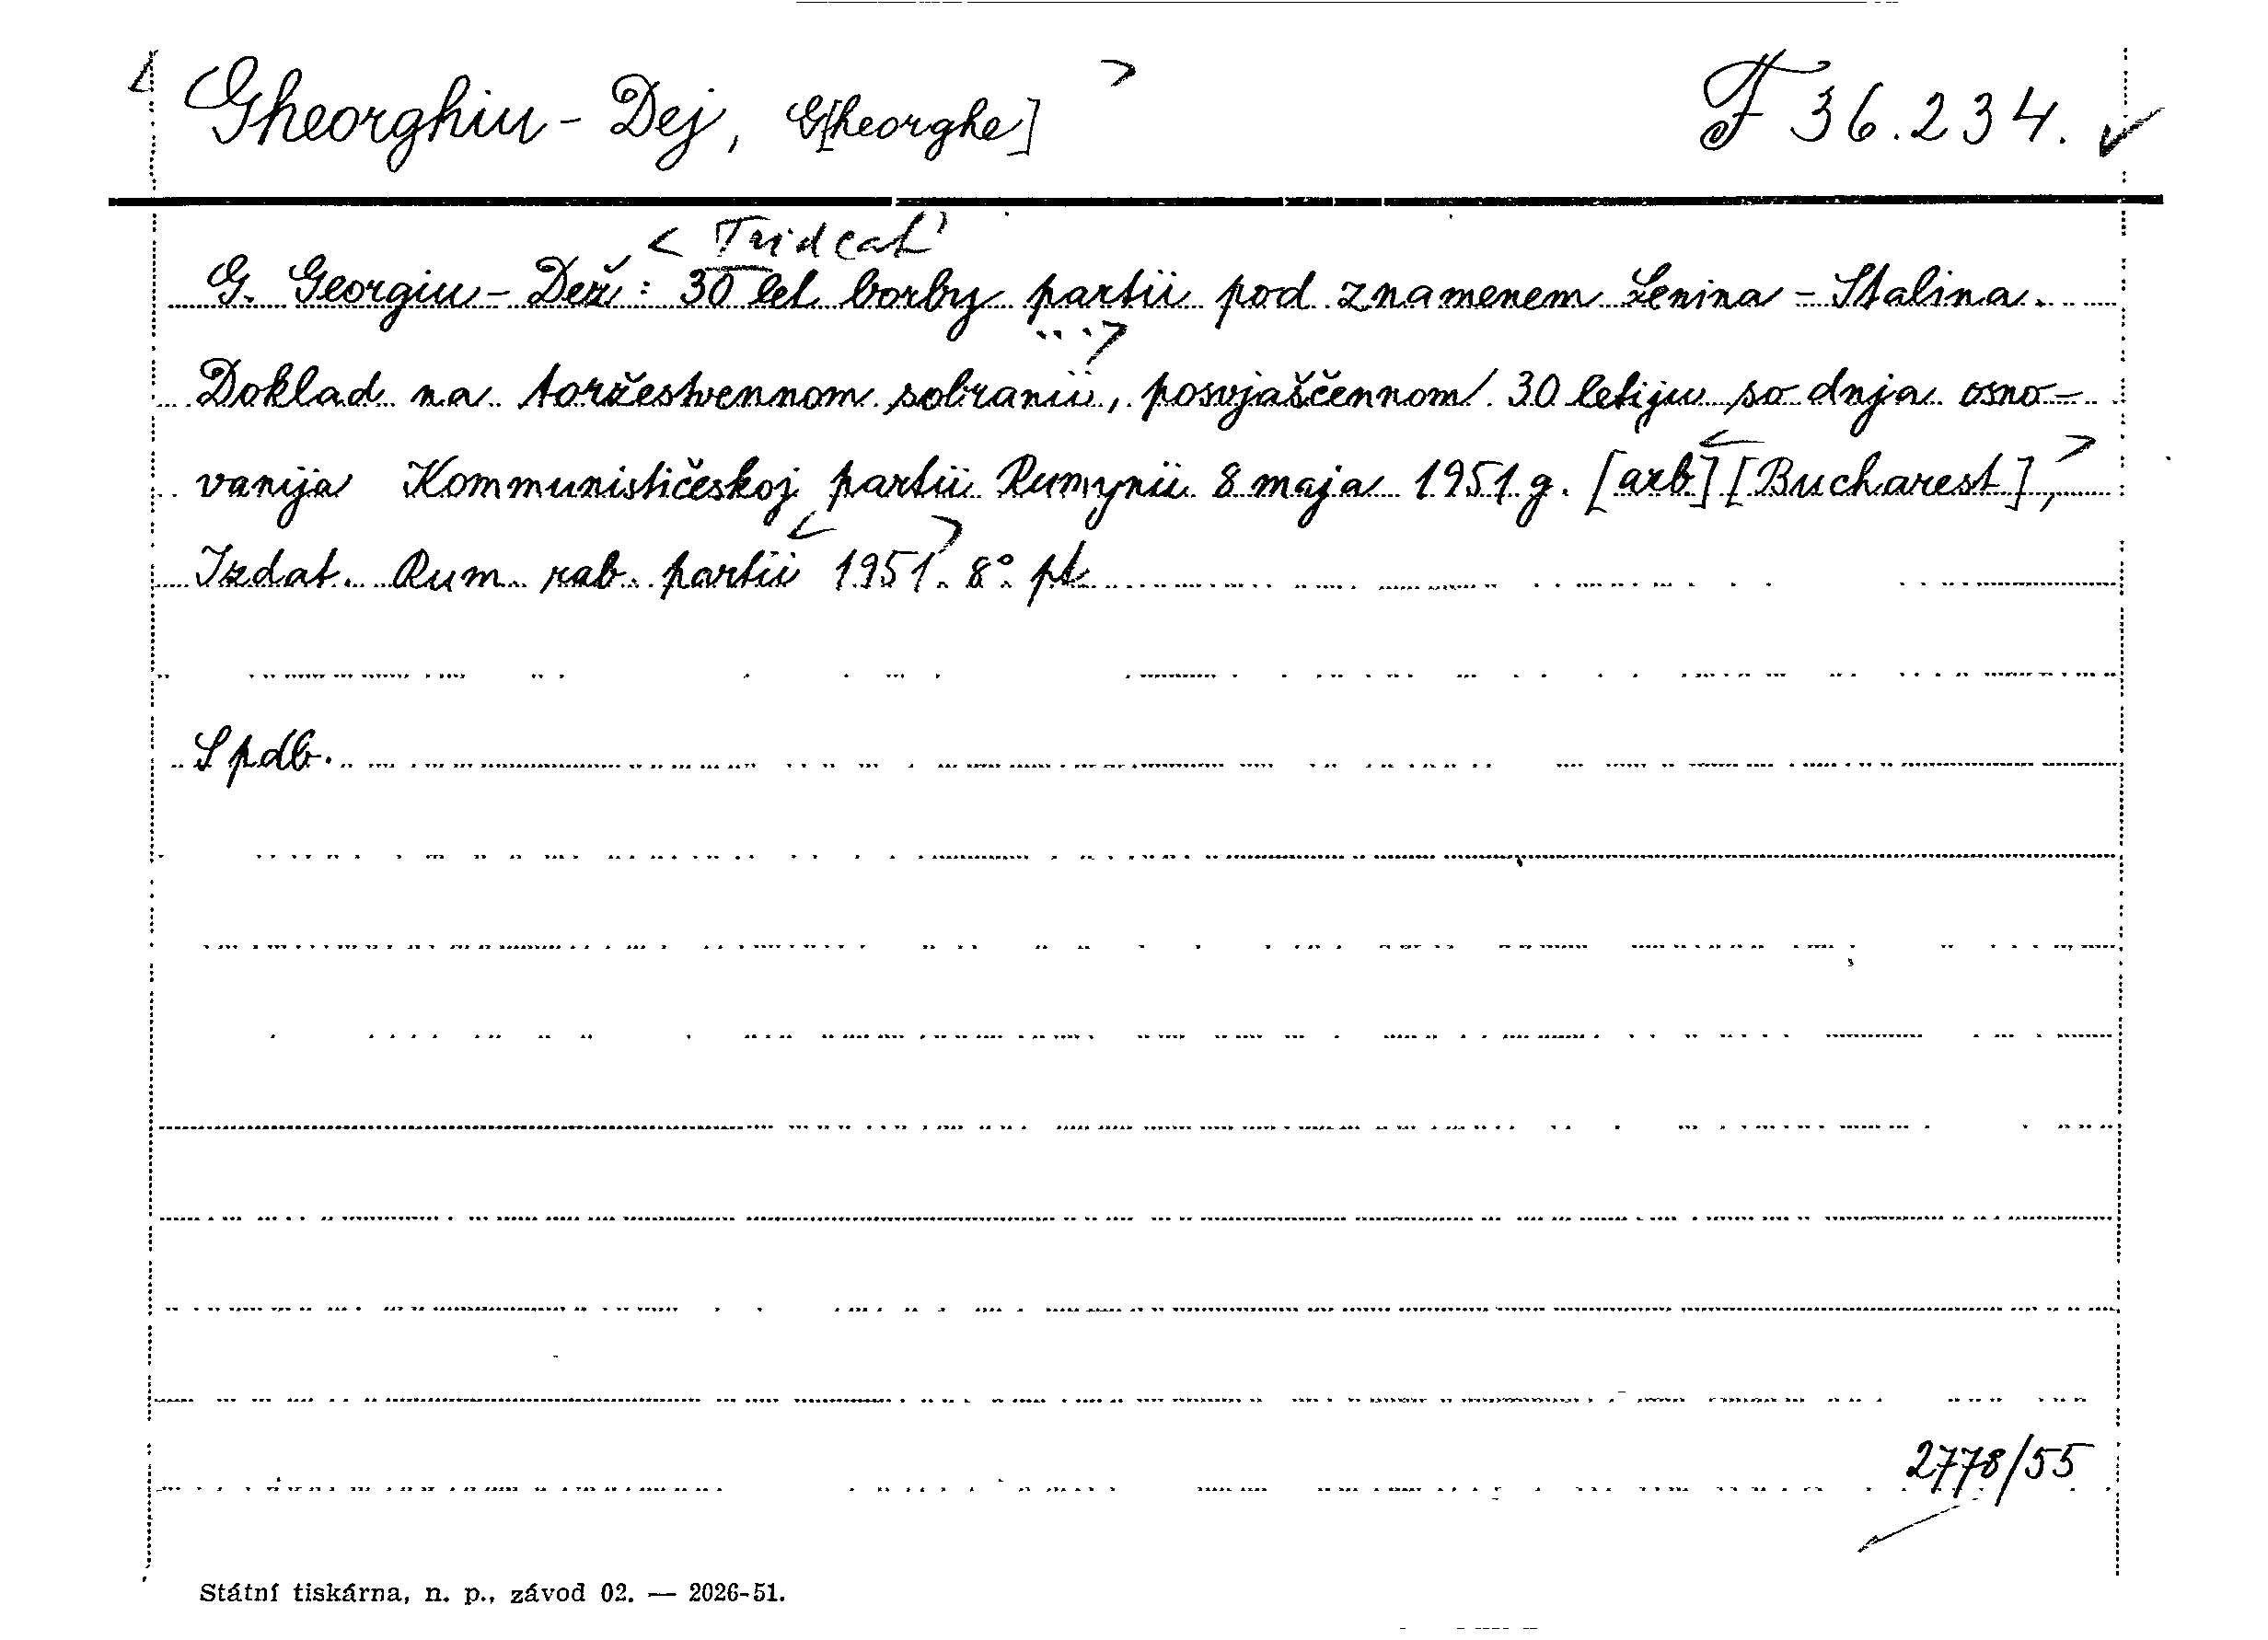 < Gheorghiu-Dej, G[heorghe] > F 36.234. ✓
< Tridcat'
G. Georgiu-Dež: 30 let borby partii pod znamenem Lenina-Stalina.
... >
Doklad na toržestvennom sobranii, posvjaščennom 30 letiju so dnja osno-
vanija Kommunističeskoj partii Rumynii 8 maja 1951 g. [arb] < [Bucharest], >
Izdat. Rum. rab. partii < 1951 >. 8° pt
Spdb.
2778/55
Státní tiskárna, n. p., závod 02. — 2026-51.